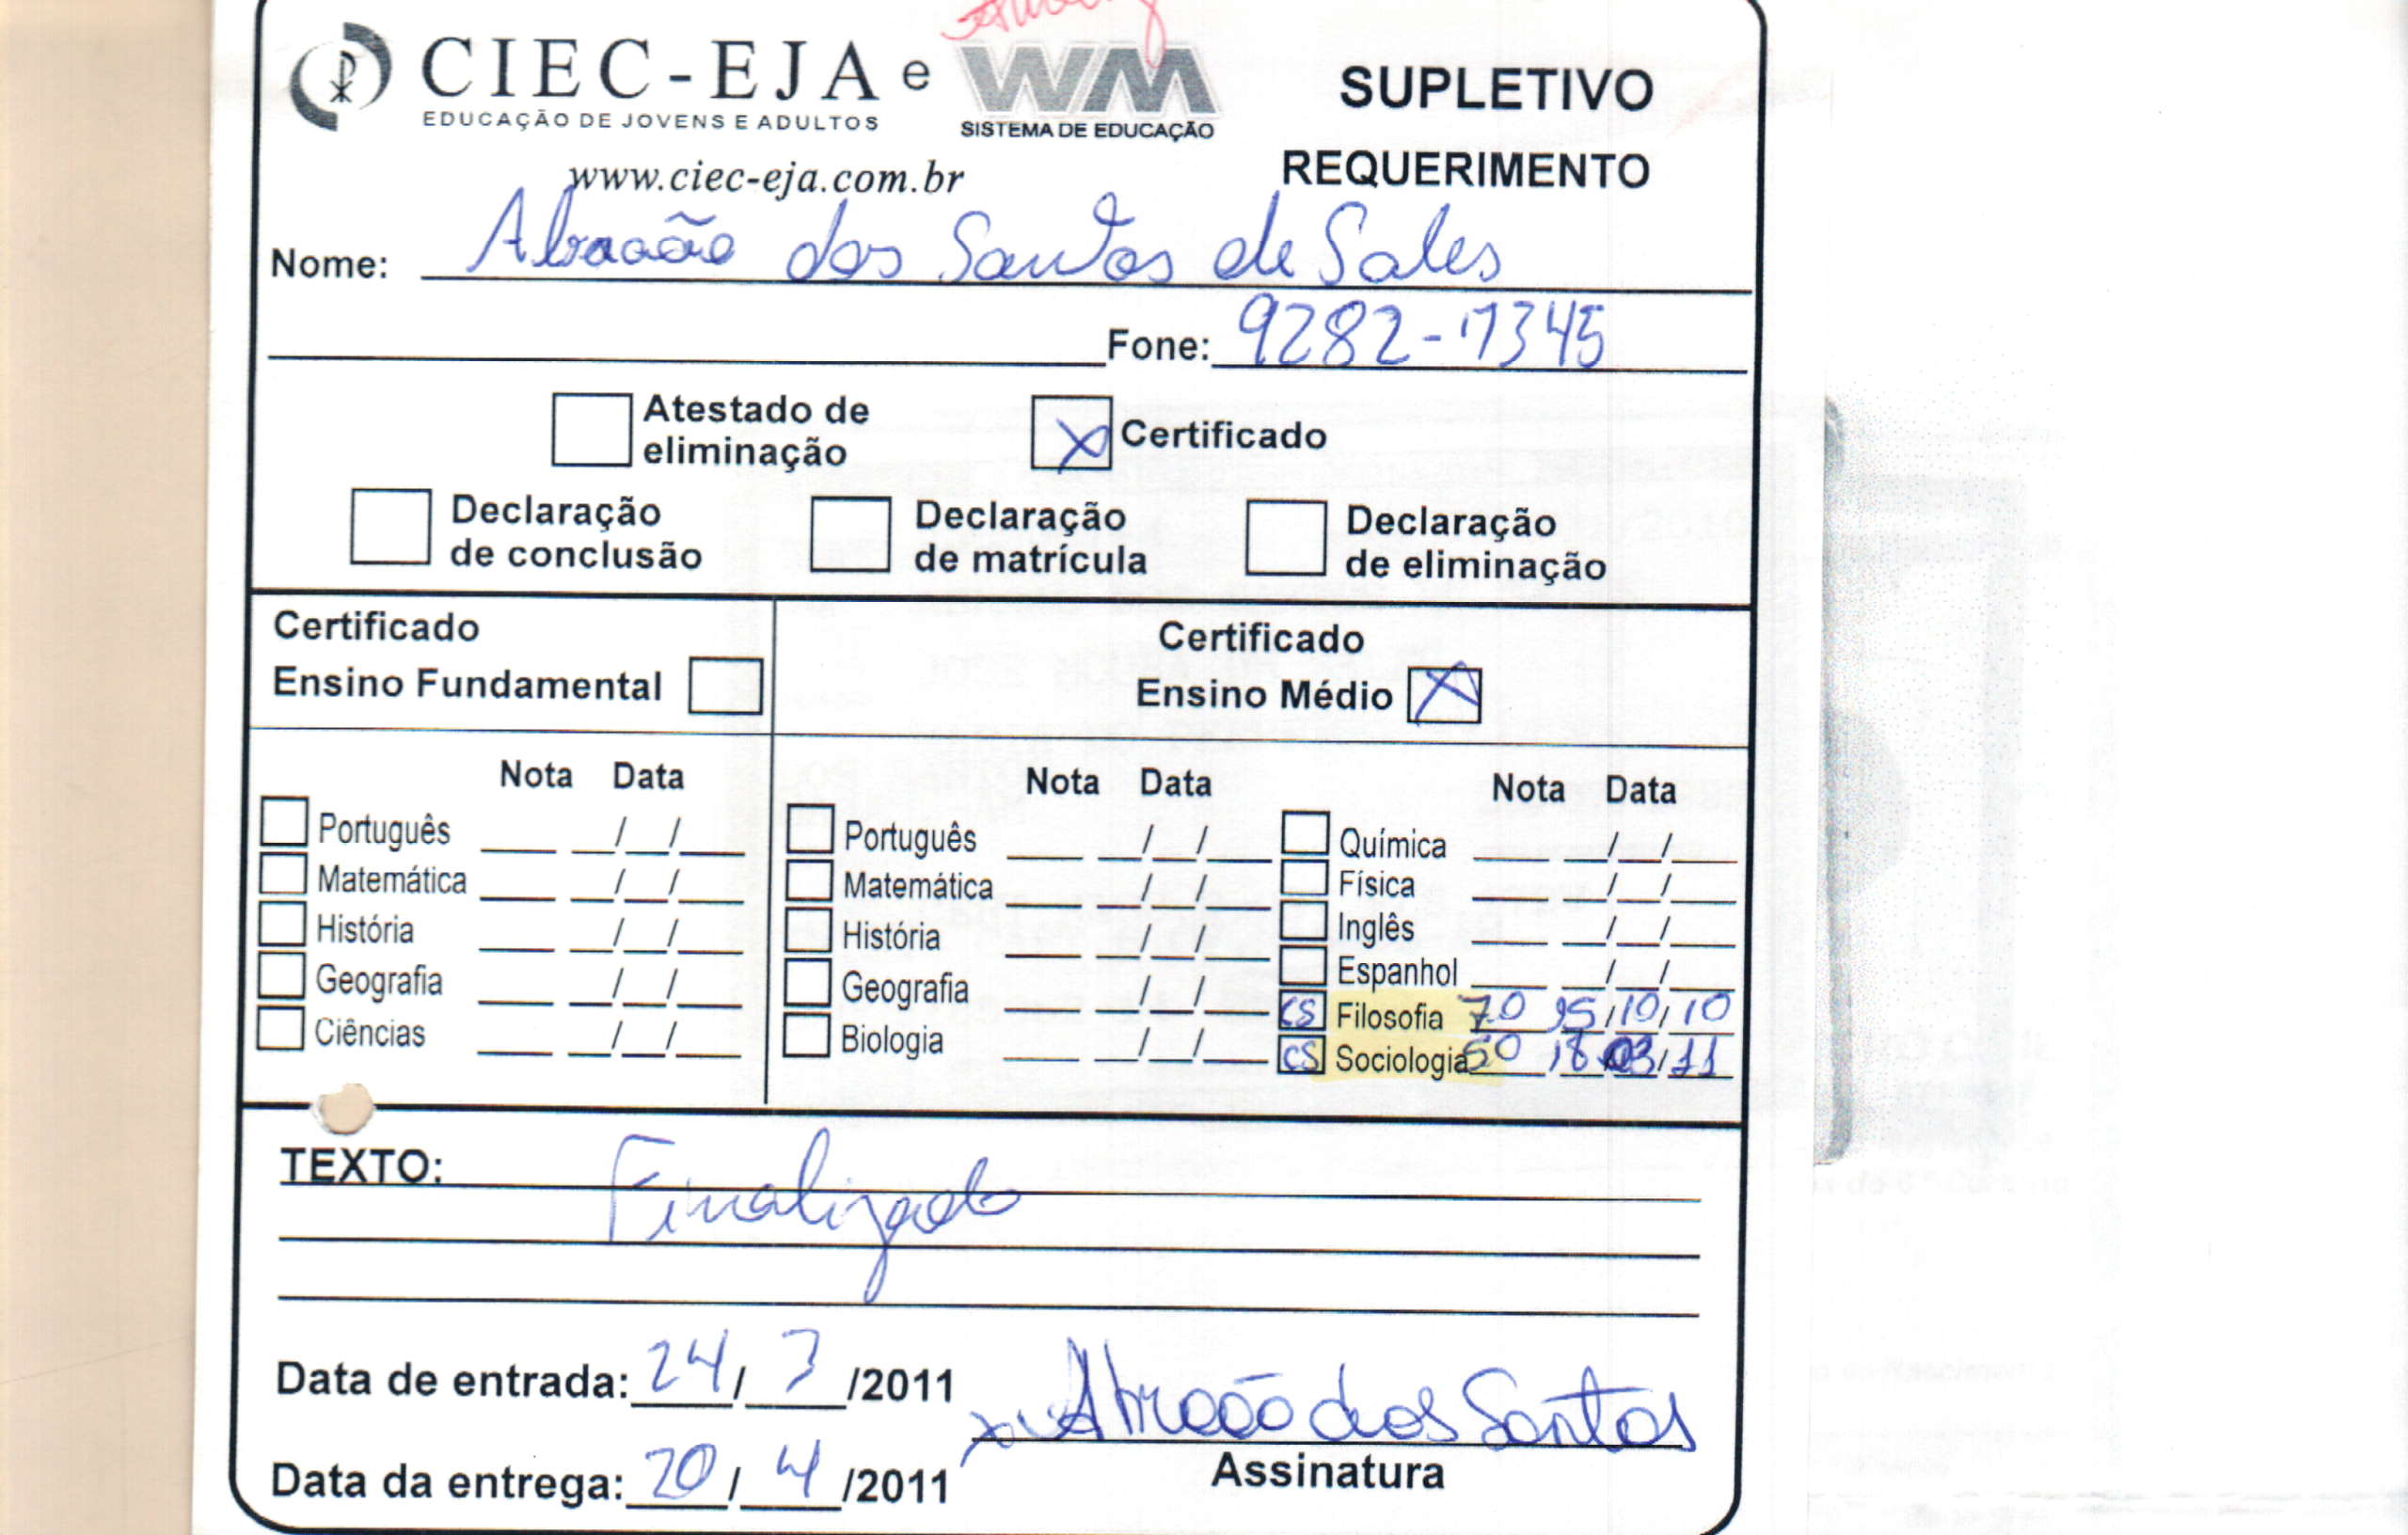 CIEC-EJA e WM
EDUCAÇÃO DE JOVENS E ADULTOS
SISTEMA DE EDUCAÇÃO
www.ciec-eja.com.br
SUPLETIVO
REQUERIMENTO
Nome: Abraão dos Santos de Sales
Fone: 9282-7345
Atestado de
eliminação
X Certificado
Declaração
de conclusão
Declaração
de matrícula
Declaração
de eliminação
Certificado
Ensino Fundamental
Certificado
Ensino Médio X
Nota Data
Português / /
Matemática / /
História / /
Geografia / /
Ciências / /
Nota Data
Português / /
Matemática / /
História / /
Geografia / /
Biologia / /
Nota Data
Química / /
Física / /
Inglês / /
Espanhol / /
CS Filosofia 70 /10/10
CS Sociologia 50 18/03/11
TEXTO: Finalizado
Data de entrada: 24/3/2011
Data da entrega: 20/4/2011
x Abraão dos Santos
Assinatura